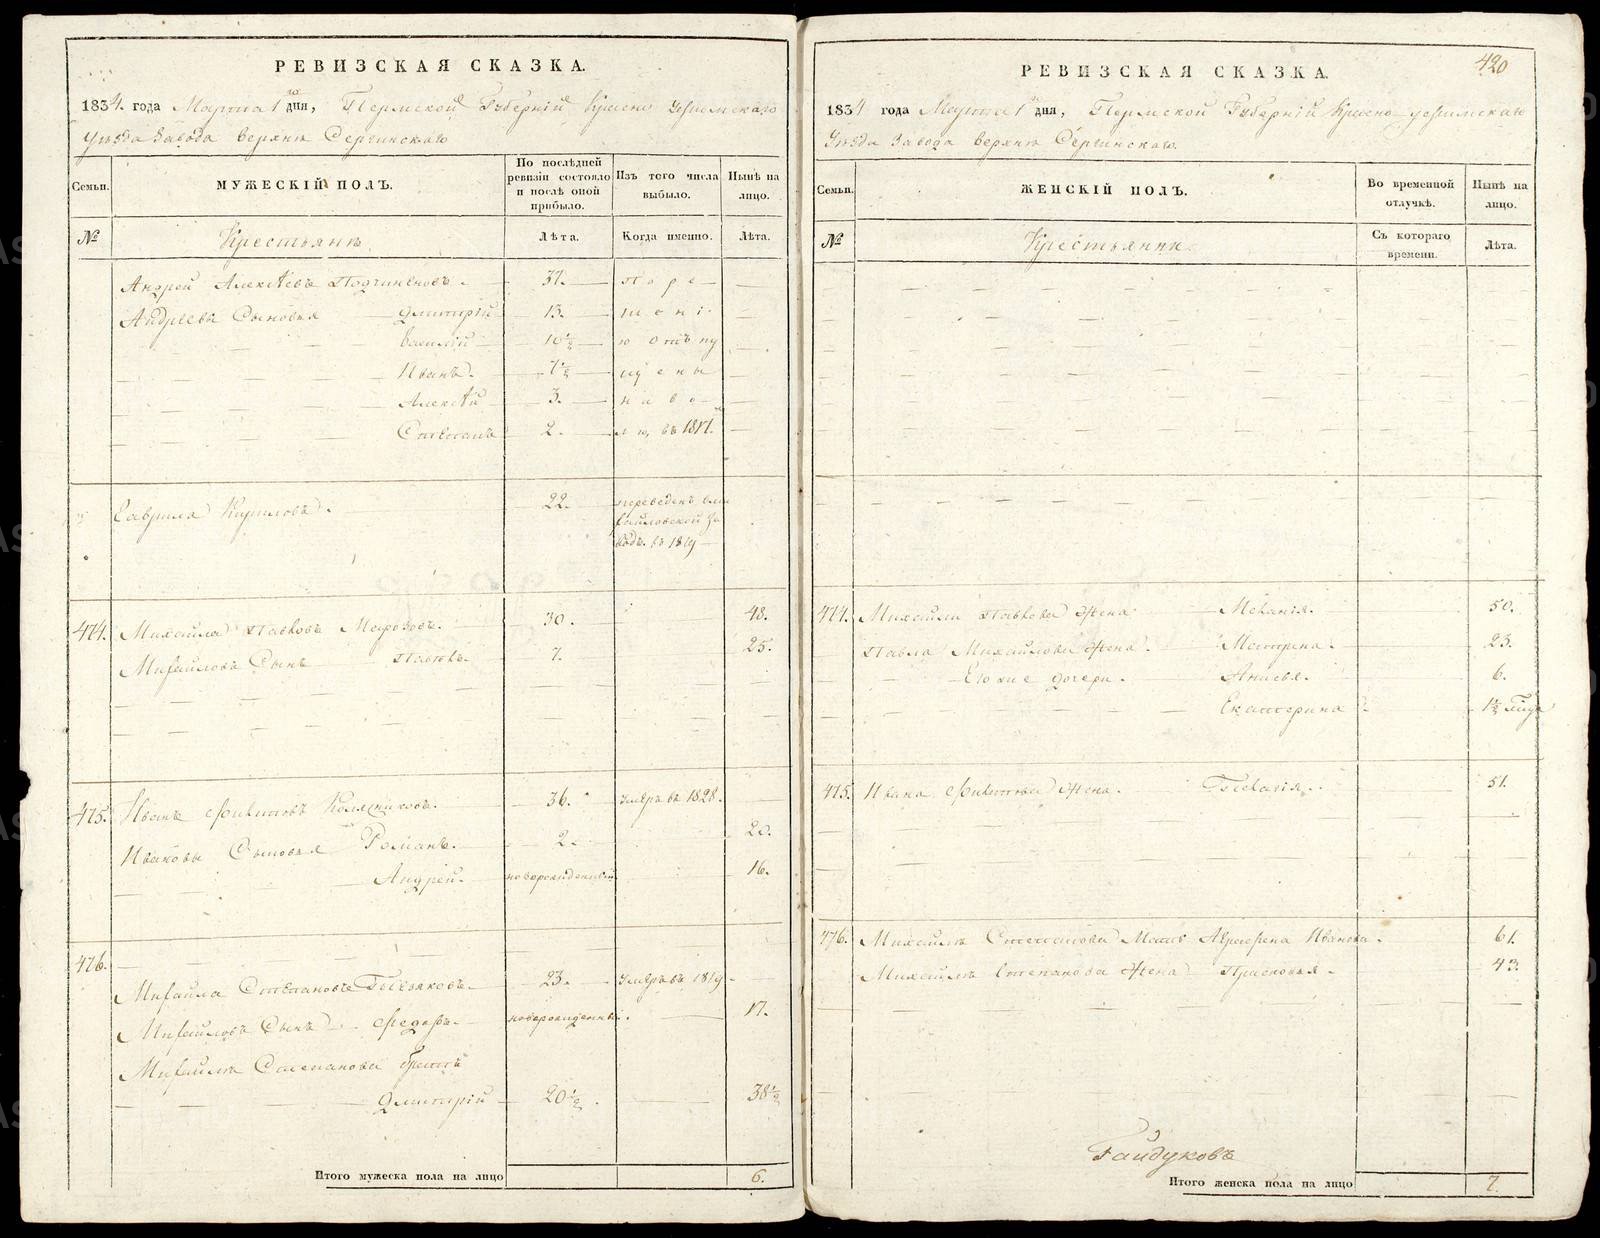 РЕВИЗСКАЯ СКАЗКА.
1834. года Марта 1го дня, Пермской Губернїи Красно уфимскаго
Уѣзда Завода Верхне Сергинскаго
Семьи.
МУЖЕСКІЙ ПОЛЪ.
По послѣдней ревизіи состояло и послѣ оной прибыло.
Изъ того числа выбыло.
Нынѣ на лицо.
№
Крестьянѣ
Лѣта.
Когда именно.
Лѣта.
Андрей Алексѣевъ — 37. — п о р е —
Андреевы Сыновья — Дмитрій — 13.
Василій — 10½ — ю отъ пу
Иванъ. — 7½ — щ е н ы
Алексѣй — 3. — н а в о —
Степанъ — 2. — л ю, въ 1817.
Гаврила Кириловъ. 22. переведенъ в
Михайловской За
водъ. въ 1819
474. Михайла Павловъ Морозовъ. 30. 48.
Михайловъ Сынъ Павелъ. 7. 25.
475. Иванъ Филиповъ Колясниковъ. 36. умеръ въ 1828.
Ивановы Сыновья Романъ. 2. 20.
Андрей. новорожденный 16.
476.
Михайла Степановъ 23. умеръ въ 1819
Михайловъ Сынъ — Федоръ. новорожденный. 17.
Михайла Степанова братъ
Дмитрій 20½ 38½
Итого мужеска пола на лицо 6.
420
РЕВИЗСКАЯ СКАЗКА.
1834 года Марта 1 дня, Пермской Губернїи Красно уфимскаго
Уѣзда Завода Верхне Сергинскаго
Семьи.
ЖЕНСКІЙ ПОЛЪ.
Во временной отлучкѣ.
Нынѣ на лицо.
№
Крестьянки
Съ котораго времени.
Лѣта.
474. Михайла Павлова Жена — Меланія. 50.
Павла Михайлова Жена. Матрена. 23.
Его же дочери. Анисья. 6.
Екатерина 1½ Года
475. Ивана Филипова Жена. 51.
476. Михайла Степанова Мать Аграфена Иванова. 61.
Михайла Степанова Жена Прасковья. 43.
Гайдуковъ
Итого женска пола на лицо 7.